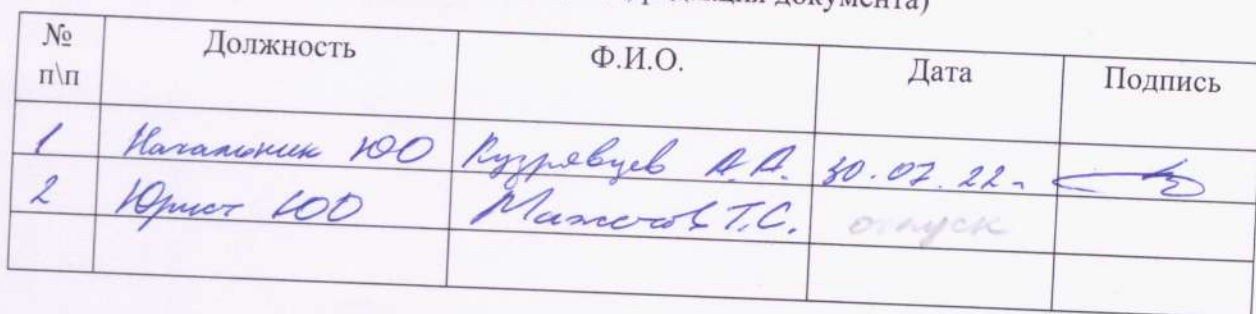 документа)
№ п\п Должность Ф.И.О. Дата Подпись
1 Начальник ЮО Кудрявцев А.А. 30.07.22г
2 Юрист ЮО Т.С. отпуск